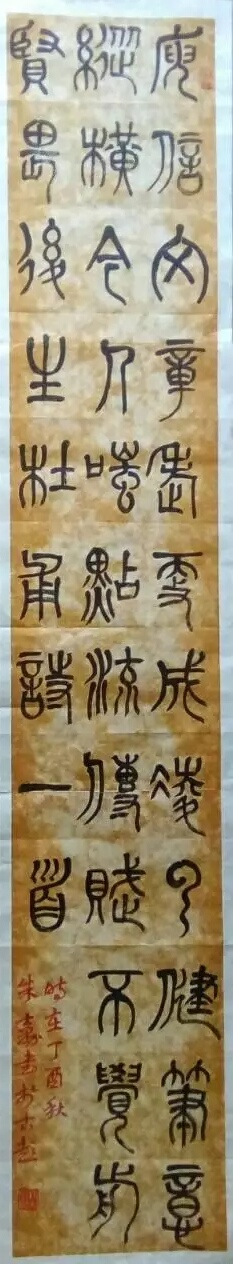 庾信文章老更成凌云健筆意
縱橫今人嗤點流傳賦不覺前
賢畏後生杜甫詩一首
時在丁酉秋
朱嘉書於古越